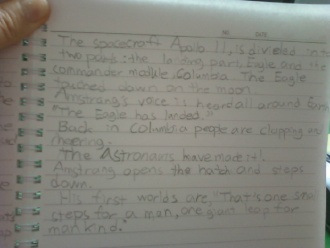 The spacecraft Apolo 11, is divided into
two parts: the landing part, Eagle and the
commander module, Columbia. The Eagle
touched down on the moon
Amstrang's voice is heard all around Earth
"The Eagle has landed."
Back in Columbia people are clapping and
cheering.
The Astronauts have made it!
Amstrang opens the hatch and steps
down.
His first worlds are, "That's one small
steps for a man, one giant leap for
mankind."